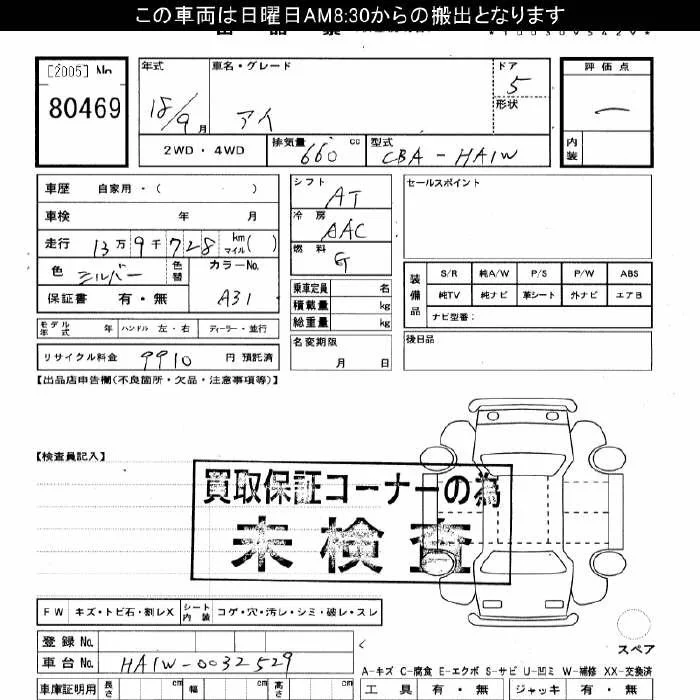 この車両は日曜日AM8:30からの搬出となります
[2005] No
80469
年式 車名・グレード ドア 評価点
18/9月 アイ 5 一
形状
2WD・4WD 排気量 660 cc 型式 CBA-HA1W 内装
車歴 自家用・( ) シフト AT セールスポイント
車検 年 月 冷房 AAC
走行 13万9千728 km マイル( ) 燃料 G
色 シルバー 色替 カラーNo. A31
保証書 有・無
乗車定員 名
積載量 kg
総重量 kg
装備品 S/R 純A/W P/S P/W ABS
純TV 純ナビ 革シート 外ナビ エアB
ナビ型番:
モデル年式 年 ハンドル 左・右 ディーラー・並行 名変期限 月 日 後日品
リサイクル料金 9910 円 預託済
【出品店申告欄(不良箇所・欠品・注意事項等)】
【検査員記入】
買取保証コーナーの為
未検査
FW キズ・トビ石・割レX シート内装 コゲ・穴・汚レ・シミ・破レ・スレ
登録 No.
スペア
車台 No. HA1W-0032529
A-キズ C-腐食 E-エクボ S-サビ U-凹ミ W-補修 XX-交換済
車庫証明用 長さ cm 幅 cm 高さ cm 工具 有・無 ジャッキ 有・無